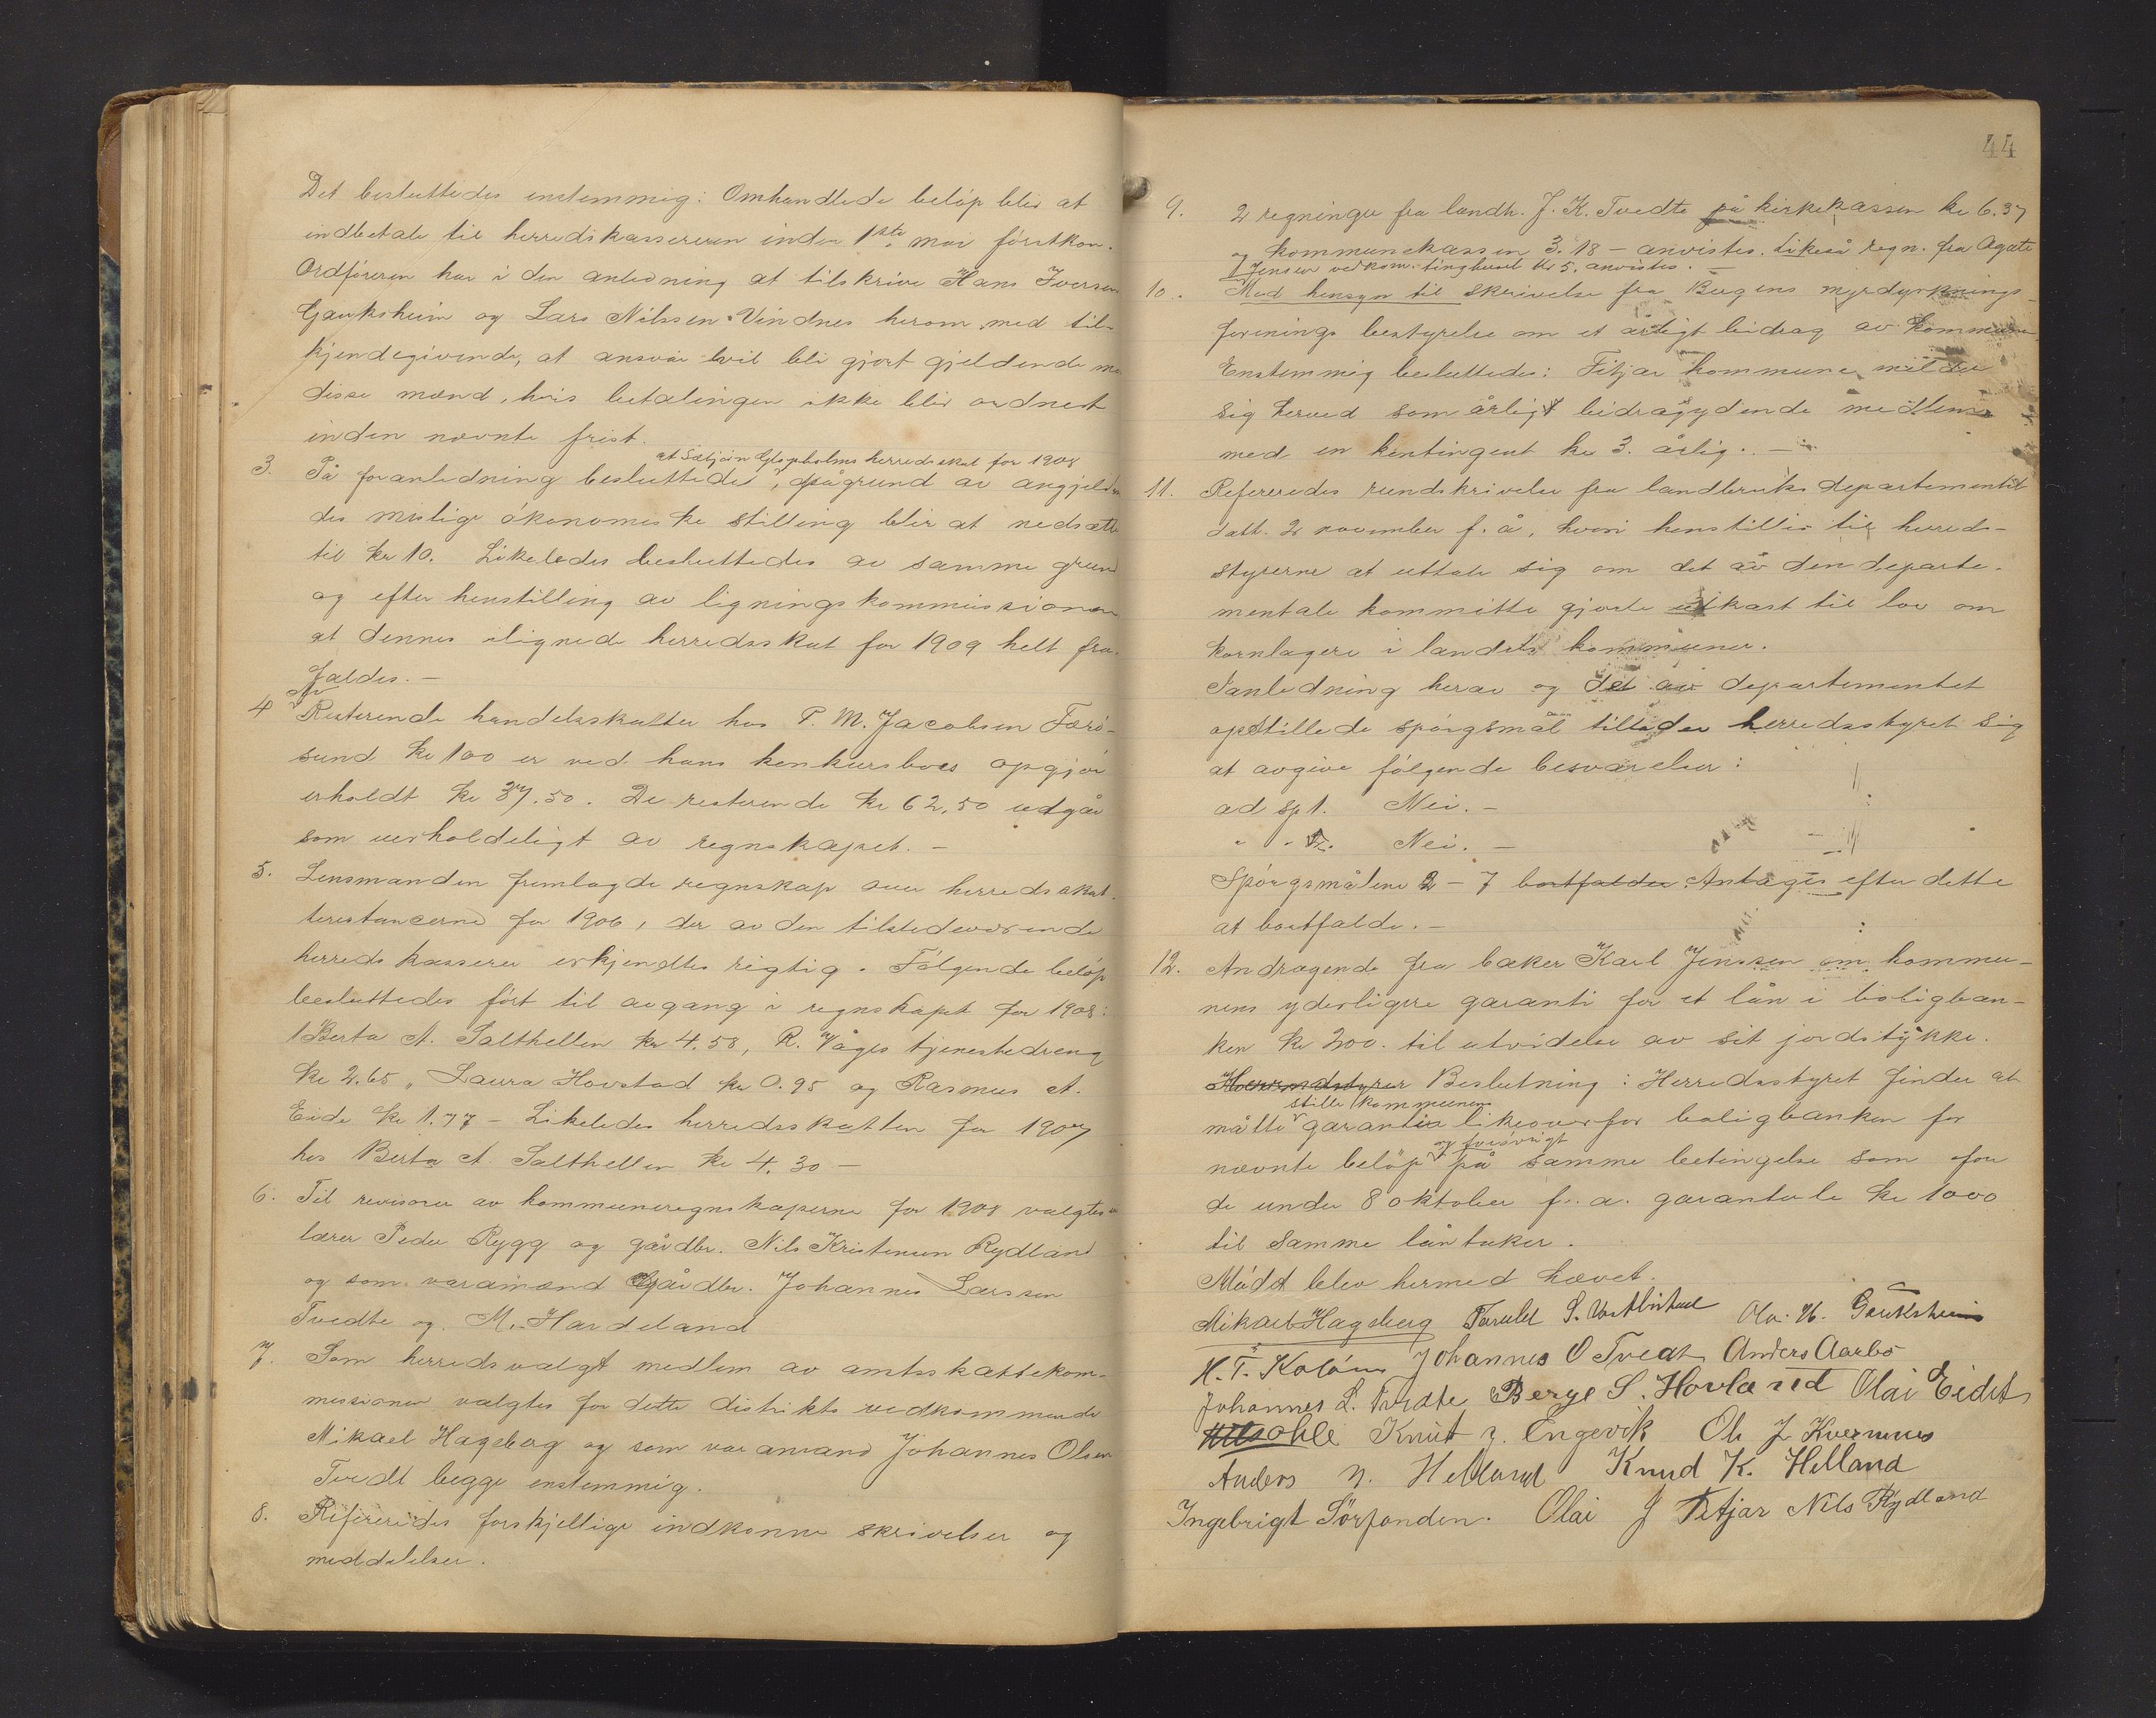 Det besluttedes enstemmig: Omhandlede beløp blir at
indbetale til herredskassereren inden 1ste mai førstkom.
Ordføreren har i den anledning at tilskrive Hans Iversen
Gauksheim og Lars Nilssen Vindnes herom med til-
kjendegivende, at ansvar vil bli gjort gjeldende mo
disse mænd, hvis betalingen ikke blir ordnet
inden nævnte frist.
at Sætjørn Glopholms herredsskat for 1908
3. På foranledning besluttedes, pågrund av angjeld
des muslige økonomiske stilling blir at nedsætte
til kr 10. Likeledes besluttedes av samme grund
og efter henstilling av ligningskommissionen
at dennes ilignede herredsskat for 1909 helt fra-
faldes. —
Av
4 Resterende handelsskatter hos P. M. Jacobsen Færø-
sund kr 100 er ved hans konkursboes opgjør
erholdt kr 37.50. De resterende kr 62,50 utgår
som uerholdeligt av regnskapet. —
5. Lensmanden fremlagde regnskap over herredsskat-
terestancerne for 1906, der av den tilstedeværende
herredskasserer erkjendtes rigtig. Følgende beløp
besluttedes ført til avgang i regnskapet for 1908:
Berta A. Salthellen kr 4.58, R. Våges tjenestedreng
kr 2.65, Laura Hovstad kr 0.95 og Rasmus A.
Eide kr 1.77 — Likeledes herredsskatten for 1907
hos Berta A. Salthellen kr 4.30 —
6. Til revisorer av kommuneregnskaperne for 1908 valgtes
lærer Peder Rygg og gårdbr. Nils Kristensen Rydland
og som varamænd Gårdbr. Johannes Larssen
Tvedte og M. Hardeland
7. Som herredsvalgt medlem av amtsskattekom-
missionen valgtes for dette distrikts vedkommende
Mikael Hageberg og som varamand Johannes Olsen
Tvedt begge enstemmig.
8. Refereredes forskjellige indkomne skrivelser og
meddelelser.
44
9. 2 regninger fra landh. J. K. Tvedte på kirkekassen kr 6.37
og kommunekassen 3.18 — anvistes. Likeså regn. fra Agate
Jensen vedkom. tinghuset kr 5. anvistes. —
10. Med hensyn til skrivelse fra Bergens myrdyrknings-
forenings bestyrelse om et årligt bidrag av kommunen
Enstemmig besluttedes: Fitjar kommune melder
sig herved som årligt bidragydende medlem
med en kontingent kr 3. årlig. —
11. Refereredes rundskrivelse fra landbruksdepartementet
datt. 2 november f. å, hvori henstilles til herreds-
styrerne at uttale sig om det av den departe-
mentale kommitte gjorte utkast til lov om
kornlagere i landets kommuner.
I anledning herav og det av departementet
opstillede spørgsmål tillader herredsstyret sig
at avgive følgende besvarelser:
ad sp 1. Nei. —
" " 2. Nei. —
Spørgsmålene 2 – 7 bortfalder Antages efter dette
at bortfalde. —
12. Andragende fra bæker Karl Jenssen om kommu-
nens yderligere garanti for et lån i boligban-
ken kr 200. til utvidelse av sit jordstykke.
Herredsstyrer Beslutning: Herredsstyret finder at
stille kommunens
måtte garanti likeoverfor boligbanken for
og forøvrigt
nævnte beløp på samme betingelse som for
de under 8 oktober f. a. garanterte kr 1000
til samme låntaker.
Mødet blev hermed hævet.
Mikael Hageberg Torald S. Vestbøstad Ola. H. Gauksheim
H. T. Koløen Johannes O Tveat Anders Aarbø
Johannes L. Tvedte Berge S. Hovland Olai Eidet
Knut N. Engevik Ole J Kvernenes
Anders N. Helland Knud K. Helland
Ingebrigt Sørfonden. Olai J Fitjar Nils Rydland